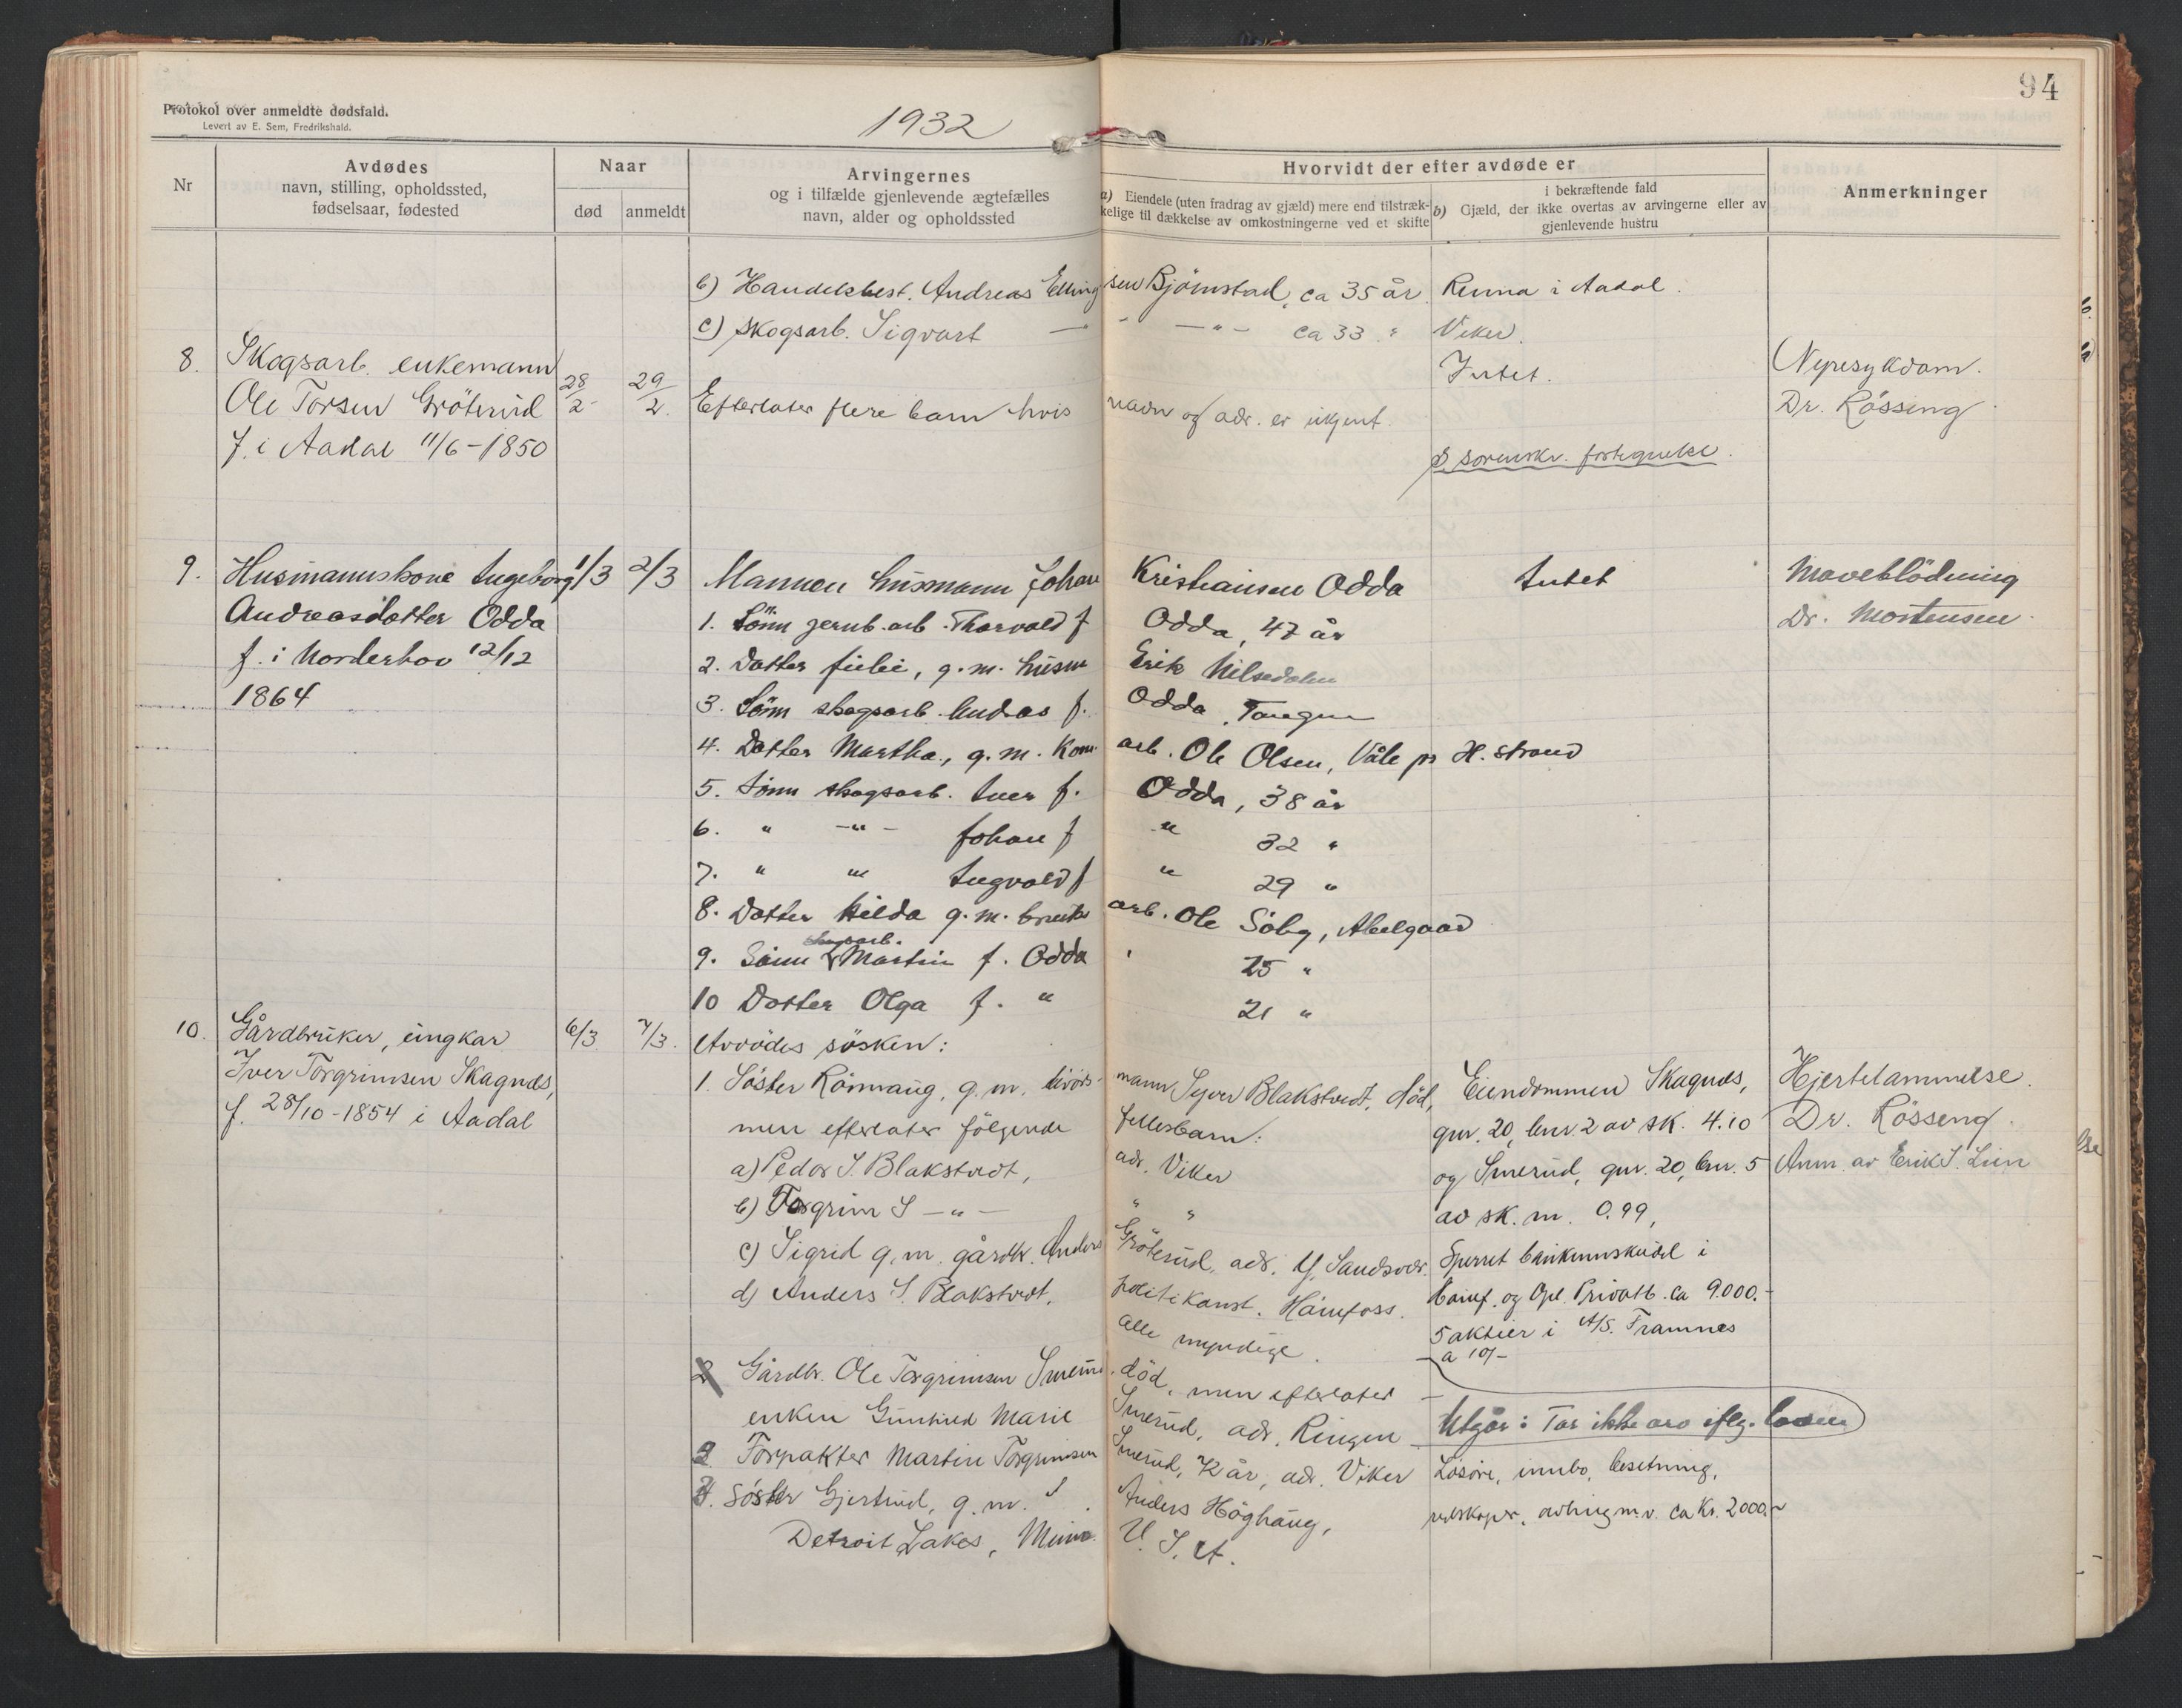 94
Protokol over anmeldte dødsfald.
Levert av E. Sem, Fredrikshald.
1932
Nr
Avdødes
navn, stilling, opholdssted,
fødselsaar, fødested
Naar
død
anmeldt
Arvingernes
og i tilfælde gjenlevende ægtefælles
navn, alder og opholdssted
Hvorvidt der efter avdøde er
a) Eiendele (uten fradrag av gjæld) mere end tilstræk-
kelige til dækkelse av omkostningerne ved et skifte
i bekræftende fald
b) Gjæld, der ikke overtas av arvingerne eller av
gjenlevende hustru
Anmerkninger
b) Handelsbest. Andreas Ellingsen Bjørnstad, ca 35 år. Renna i Aadal.
c) Skogsarb. Sigvart — " — " — ca 33 " Viker.
8. Skogsarb. enkemann
Ole Torsen Gröterud
f. i Aadal 11/6-1850
28/2 29/2
Efterlater flere barn hvis navn og adr. er ukjent.
Intet.
sorenskr. fortegnelse.
Nyresykdom.
Dr. Rössing
9. Husmannskone Ingeborg
Andreasdatter Odda
f. i Norderhov 12/12
1864
1/3 2/3
Mannen husmann Johan Kristiansen Odda
1. Sönn jernb.arb. Thorvald J Odda, 47 år
2. Datter Julie, g.m. husm Erik Nilsedalen
3. Sönn skogsarb. Andras J. Odda,
4. Datter Martha, g.m. Kom. arb. Ole Olsen, Våle pr H.strand
5. Sönn skogsarb. Iver J. Odda, 38 år
6. " — " — Johan J " 32 "
7. " " Ingvald J " 29 "
8. Datter Hilda g.m. bruks arb. Ole Söby, Abelgaard
skogsarb.
9. Sönn Martin J. Odda 25 "
10 Datter Olga J. " 21 "
Intet
Maveblödning
Dr. Mortensen
10. Gårdbruker, ungkar
Iver Torgrimsen Skagnes,
f. 28/10-1854 i Aadal
6/3 7/3.
Avdödes sösken:
1. Söster Rönnaug, g.m. gårdsmann Syver Blakstvedt, död,
men efterlater fölgende fellesbarn:
a) Peder S. Blakstvedt, adr. Viker
b) Torgrim S — " — " "
c) Sigrid g.m. gårdbr. Anders Gröterud, adr. Y. Sandsvær.
d) Anders S. Blakstvedt, politikonst. Hönefoss.
alle myndige.
2 Gårdbr. Ole Torgrimsen Smerud, död, men efterlater
enken Gunhild Marie Smerud, adr. Ringen
2. Forpakter Martin Torgrimsen Smerud, 72 år, adr. Viker
3. Söster Gjertrud, g.m. Anders Höghaug,
Detroit Lakes, Minn. U.S.A.
Eiendommen Skagnes,
gnr. 20, bnr. 2 av sk. 4.10
og Smerud, gnr. 20, bnr. 5
av sk. m. 0.99,
Sperret bankinnskudd i
Hönef. og Opl. Privatb. ca 9.000.-
5 aktier i A/S. Framnes
a 10/-
Utgår: Tar ikke arv iflg. loven
Lösöre, innbo, besetning,
redskaper, avling m.v. ca Kr. 2000.-
Hjertelammelse.
Dr. Rösseng.
Anm. av Erik J. Lien